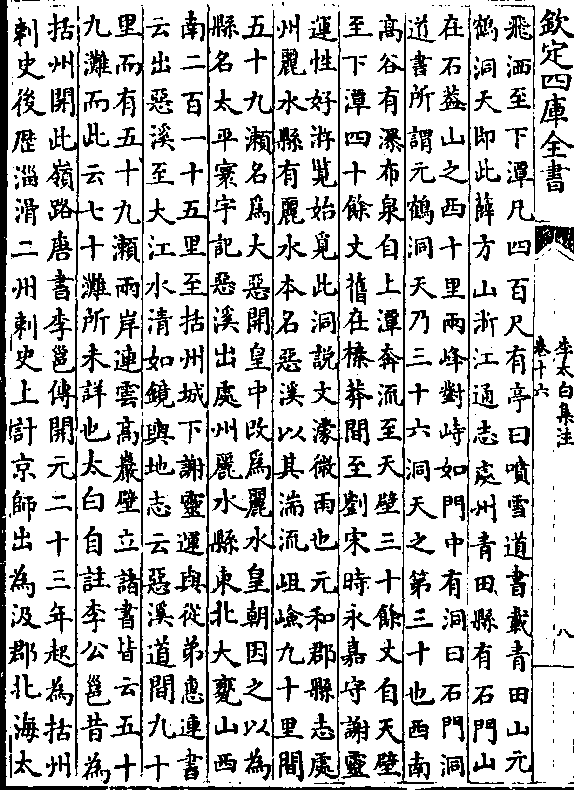 欽定四庫全書
李太白集注
卷十六
八
飛洒至下潭凡四百尺有亭曰噴雪道書載青田山元
鶴洞天即此薛方山浙江通志處州青田縣有石門山
在石葢山之西十里兩峰對峙如門中有洞曰石門洞
道書所謂元鶴洞天乃三十六洞天之第三十也西南
高谷有瀑布泉自上潭奔流至天壁三十餘丈自天壁
至下潭四十餘丈舊在榛莽間至劉宋時永嘉守謝靈
運性好遊覧始覓此洞説文濛微雨也元和郡縣志處
州麗水縣有麗水本名惡溪以其湍流岨嶮九十里間
五十九瀨名為大惡開皇中改為麗水皇朝因之以為
縣名太平寰宇記惡溪出處州麗水縣東北大甕山西
南二百一十五里至括州城下謝靈運與從弟惠連書
云出惡溪至大江水清如鏡輿地志云惡溪道間九十
里而有五十九瀨兩岸連雲高巖壁立諸書皆云五十
九灘而此云七十灘所未詳也太白自註李公邕昔為
括州開此嶺路唐書李邕傳開元二十三年起為括州
刺史後歷淄滑二州刺史上計京師出為汲郡北海太